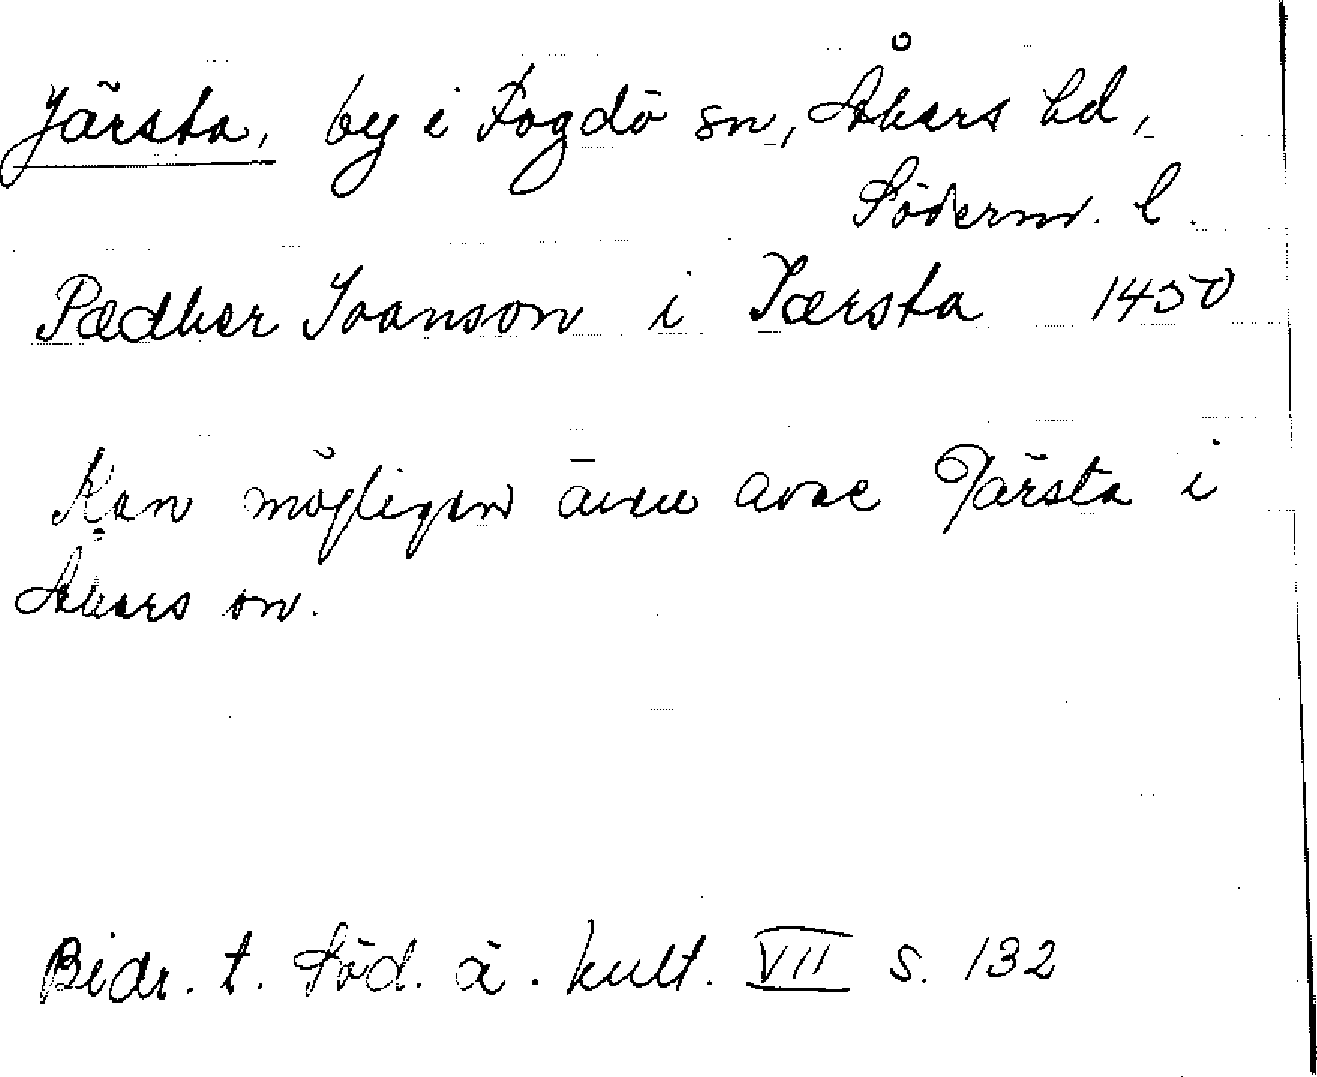 Järsta, by i Fogdö sn, Åkers hd,
Söderm. l.
Pædher Joanson i Iærsta 1450
Kan möjligen även avse Järsta i
Åkers sn.
Bidr. t. Söd. ä. kult. VII s. 132